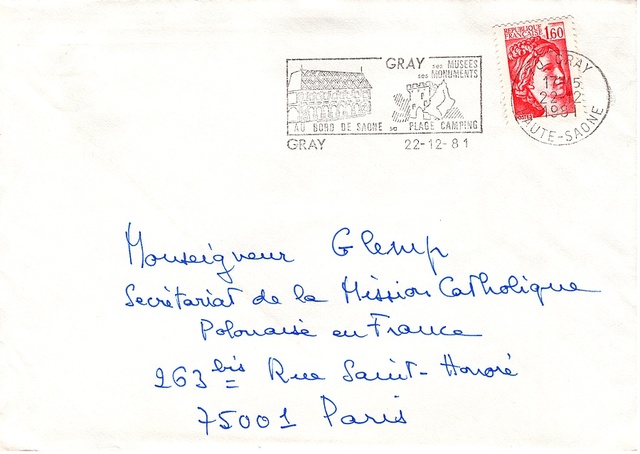 GRAY ses MUSEES
ses MONUMENTS
AU BORD DE SAONE sa PLAGE CAMPING
GRAY 22-12-81
REPUBLIQUE FRANÇAISE 1,60
GRAY
17H15
22-12
1981
HAUTE-SAONE
Monseigneur Glemp
Secrétariat de la Mission Catholique
Polonaise en France
263 bis Rue Saint-Honoré
75001 Paris